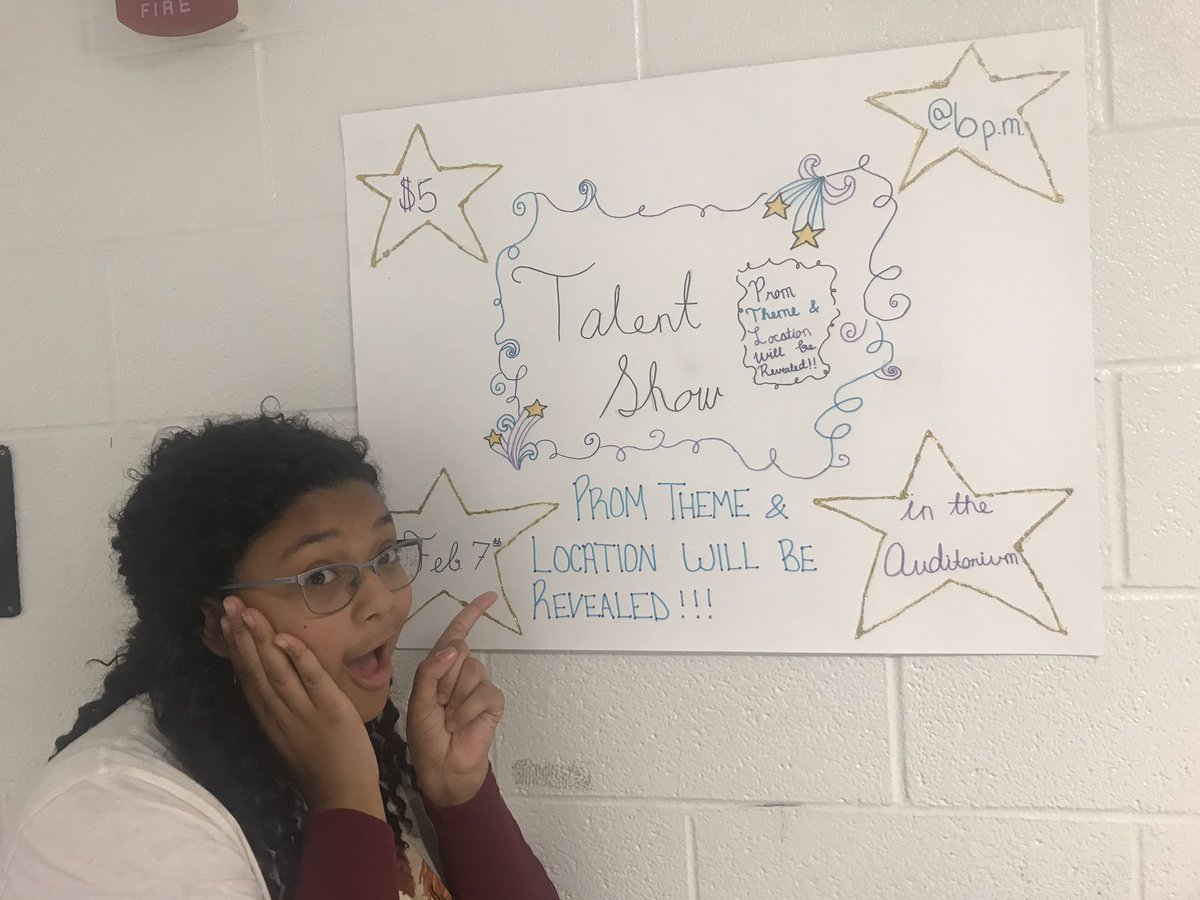 FIRE
$5
@6p.m.
Talent
Show
Prom
Theme &
Location
will be
Revealed!!
Feb. 7th
PROM THEME &
LOCATION WILL BE
REVEALED!!!
in the
Auditorium